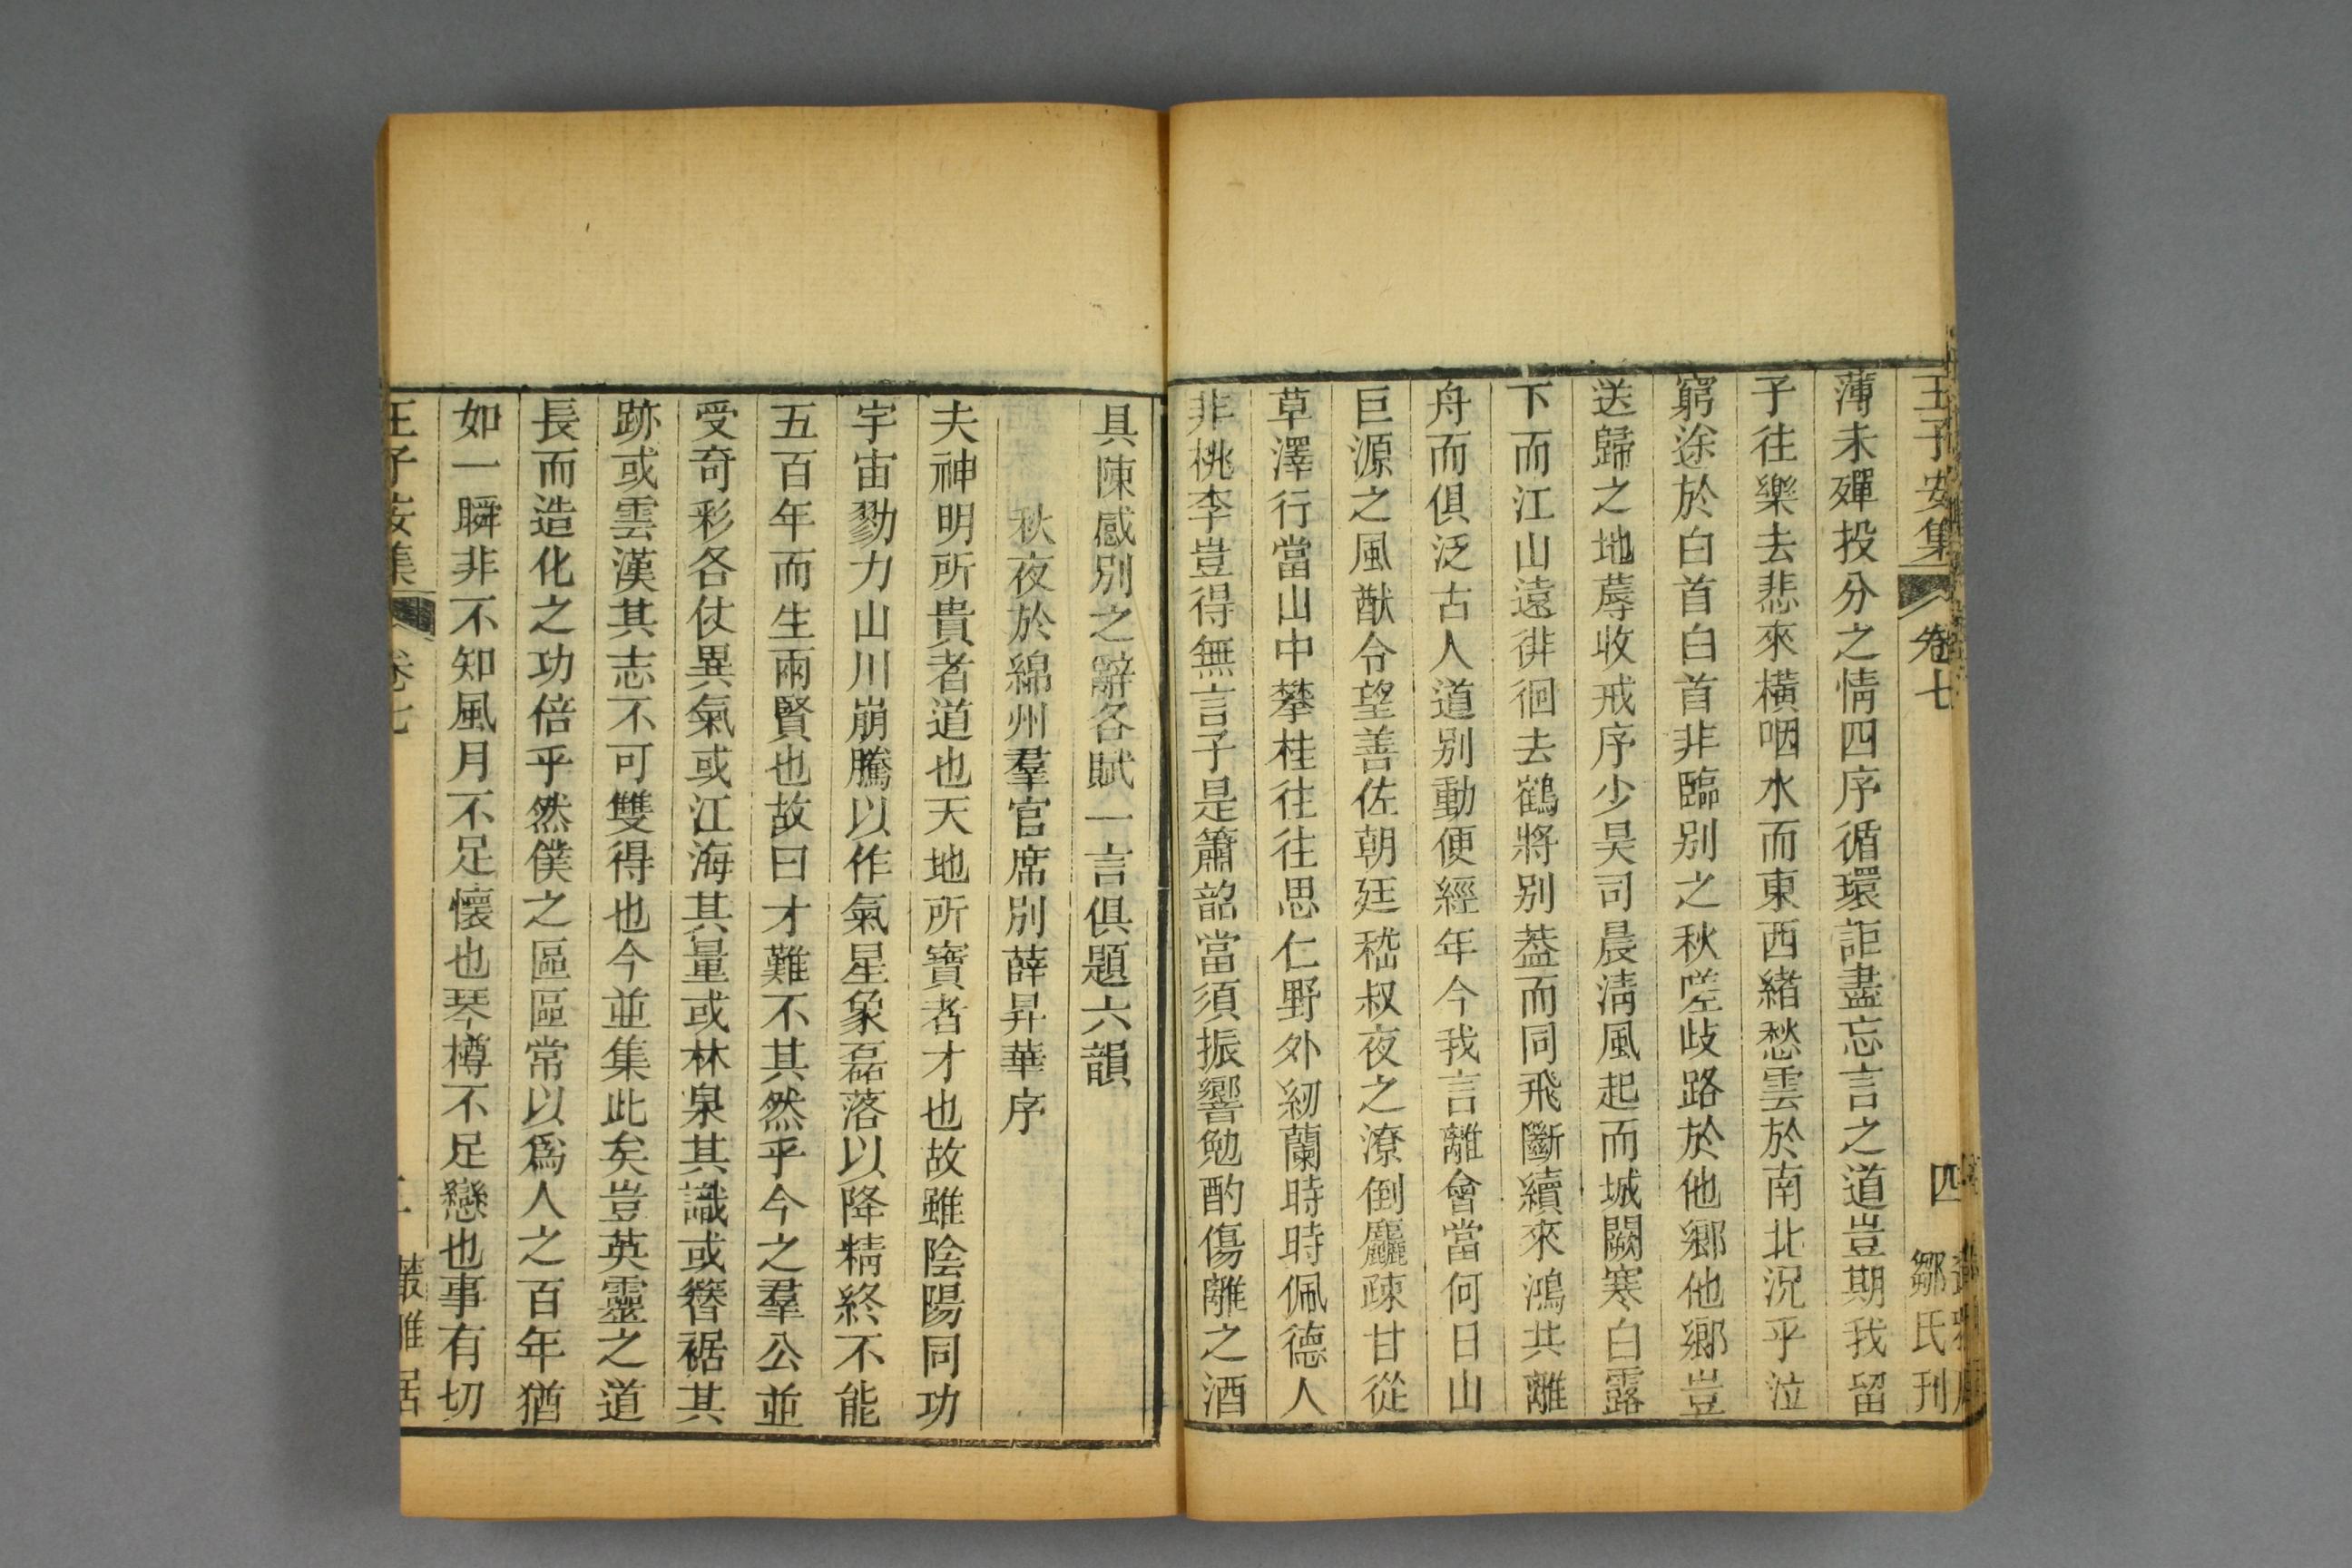 王子安集 卷七 四 鄒氏刊
薄未殫投分之情四序循環詎盡忘言之道豈期我留
子往樂去悲來橫咽水而東西緒愁雲於南北況乎泣
窮途於白首白首非臨別之秋嗟歧路於他鄉他鄉豈
送歸之地蓐收戒序少昊司晨淸風起而城闕寒白露
下而江山遠徘徊去鶴將別葢而同飛斷續來鴻共離
舟而俱泛古人道別動便經年今我言離會當何日山
巨源之風猷令望善佐朝廷嵇叔夜之潦倒麤疎甘從
草澤行當山中攀桂往往思仁野外紉蘭時時佩德人
非桃李豈得無言子是簫韶當須振響勉酌傷離之酒
具陳感別之辭各賦一言俱題六韻
秋夜於綿州羣官席別薛昇華序
夫神明所貴者道也天地所寶者才也故雖陰陽同功
宇宙勠力山川崩騰以作氣星象磊落以降精終不能
五百年而生兩賢也故曰才難不其然乎今之羣公並
受奇彩各仗異氣或江海其量或林泉其識或簪裾其
跡或雲漢其志不可雙得也今並集此矣豈英靈之道
長而造化之功倍乎然僕之區區常以爲人之百年猶
如一瞬非不知風月不足懷也琴樽不足戀也事有切
王子安集 卷七 叢雅居